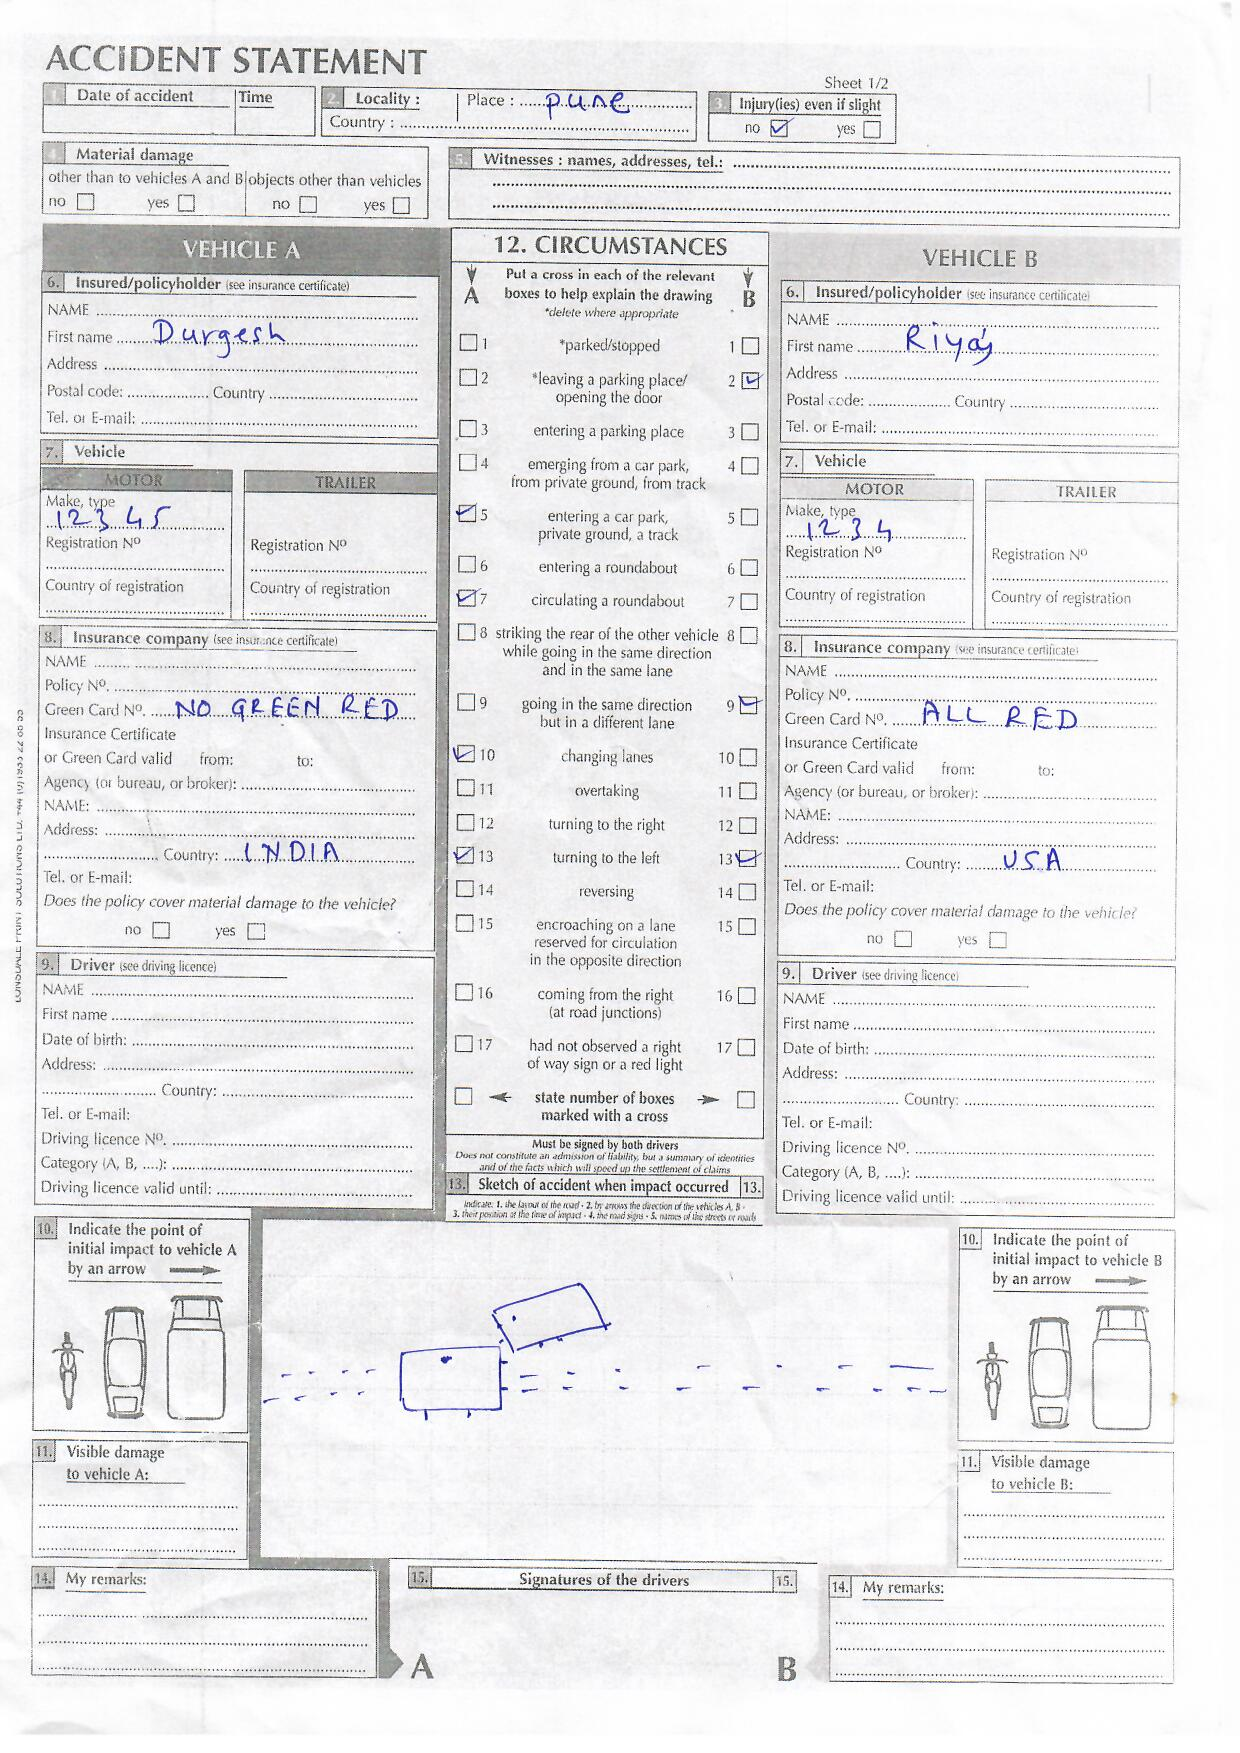 ACCIDENT STATEMENT
Sheet 1/2
1. Date of accident Time
2. Locality : Place : pune
Country :
3. Injury(ies) even if slight
no yes
4. Material damage
other than to vehicles A and B objects other than vehicles
no yes no yes
5. Witnesses : names, addresses, tel.:
VEHICLE A
6. Insured/policyholder (see insurance certificate)
NAME
First name Durgesh
Address
Postal code: Country
Tel. or E-mail:
7. Vehicle
MOTOR TRAILER
Make, type
12345
Registration Nº Registration Nº
Country of registration Country of registration
8. Insurance company (see insurance certificate)
NAME
Policy Nº.
Green Card Nº. NO GREEN RED
Insurance Certificate
or Green Card valid from: to:
Agency (or bureau, or broker):
NAME:
Address:
Country: INDIA
Tel. or E-mail:
Does the policy cover material damage to the vehicle?
no yes
9. Driver (see driving licence)
NAME
First name
Date of birth:
Address:
Country:
Tel. or E-mail:
Driving licence Nº.
Category (A, B, ....):
Driving licence valid until:
10. Indicate the point of
initial impact to vehicle A
by an arrow
11. Visible damage
to vehicle A:
14. My remarks:
12. CIRCUMSTANCES
Put a cross in each of the relevant
A boxes to help explain the drawing B
*delete where appropriate
1 *parked/stopped 1
2 *leaving a parking place/ 2
opening the door
3 entering a parking place 3
4 emerging from a car park, 4
from private ground, from track
5 entering a car park, 5
private ground, a track
6 entering a roundabout 6
7 circulating a roundabout 7
8 striking the rear of the other vehicle 8
while going in the same direction
and in the same lane
9 going in the same direction 9
but in a different lane
10 changing lanes 10
11 overtaking 11
12 turning to the right 12
13 turning to the left 13
14 reversing 14
15 encroaching on a lane 15
reserved for circulation
in the opposite direction
16 coming from the right 16
(at road junctions)
17 had not observed a right 17
of way sign or a red light
state number of boxes
marked with a cross
Must be signed by both drivers
Does not constitute an admission of liability, but a summary of identities
and of the facts which will speed up the settlement of claims
13. Sketch of accident when impact occurred 13.
Indicate: 1. the layout of the road - 2. by arrows the direction of the vehicles A, B -
3. their position at the time of impact - 4. the road signs - 5. names of the streets or roads
15. Signatures of the drivers 15.
A B
VEHICLE B
6. Insured/policyholder (see insurance certificate)
NAME
First name Riyaj
Address
Postal code: Country
Tel. or E-mail:
7. Vehicle
MOTOR TRAILER
Make, type
1234
Registration Nº Registration Nº
Country of registration Country of registration
8. Insurance company (see insurance certificate)
NAME
Policy Nº.
Green Card Nº. ALL RED
Insurance Certificate
or Green Card valid from: to:
Agency (or bureau, or broker):
NAME:
Address:
Country: USA
Tel. or E-mail:
Does the policy cover material damage to the vehicle?
no yes
9. Driver (see driving licence)
NAME
First name
Date of birth:
Address:
Country:
Tel. or E-mail:
Driving licence Nº.
Category (A, B, ....):
Driving licence valid until:
10. Indicate the point of
initial impact to vehicle B
by an arrow
11. Visible damage
to vehicle B:
14. My remarks: